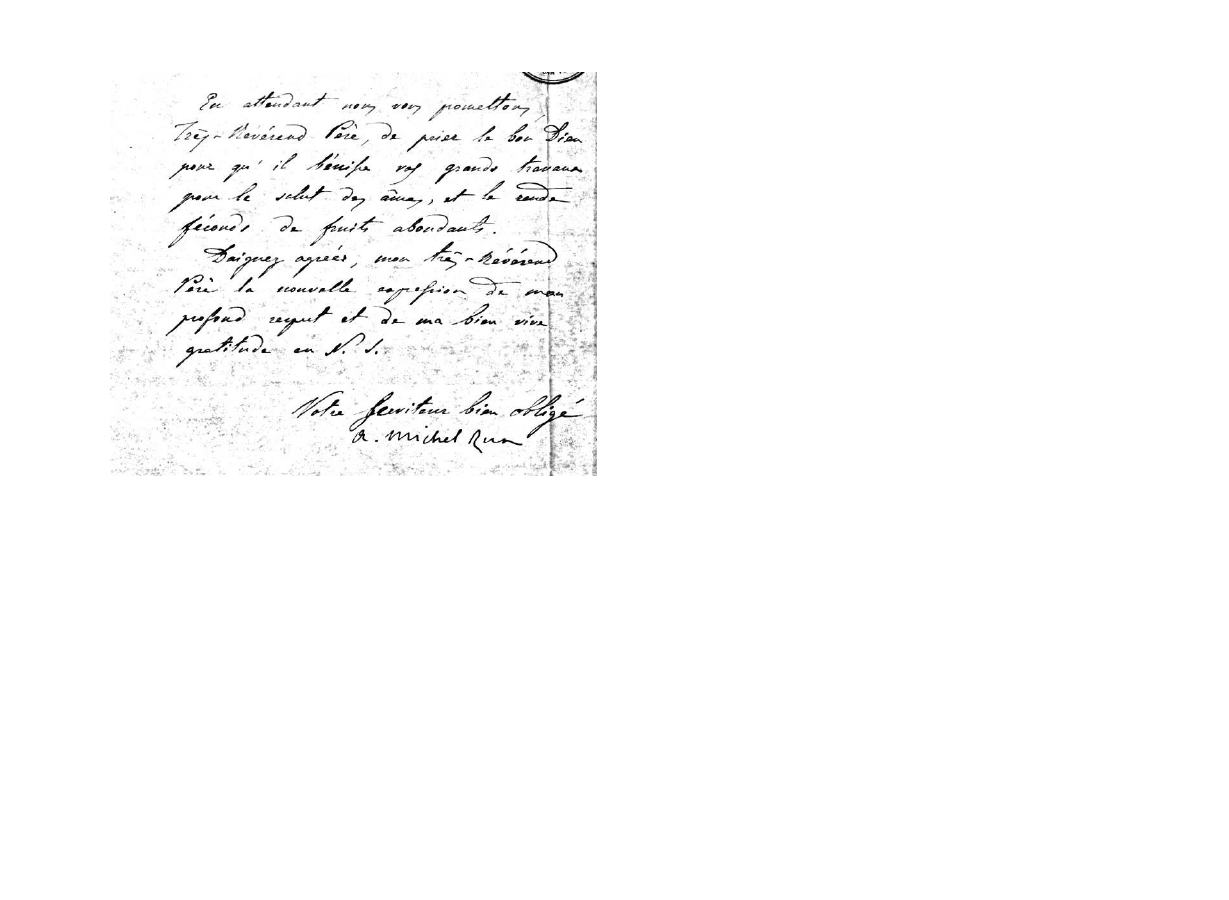 En attendant nous vous promettons,
Très-Révérend Père, de prier le bon Dieu
pour qu'il bénisse vos grands travaux
pour le salut des âmes, et le rende
féconds de fruits abondants.
Daignez agréer, mon très-Révérend
Père la nouvelle expression de mon
profond respect et de ma bien vive
gratitude en N. S.
Votre serviteur bien obligé
a. Michel Rua